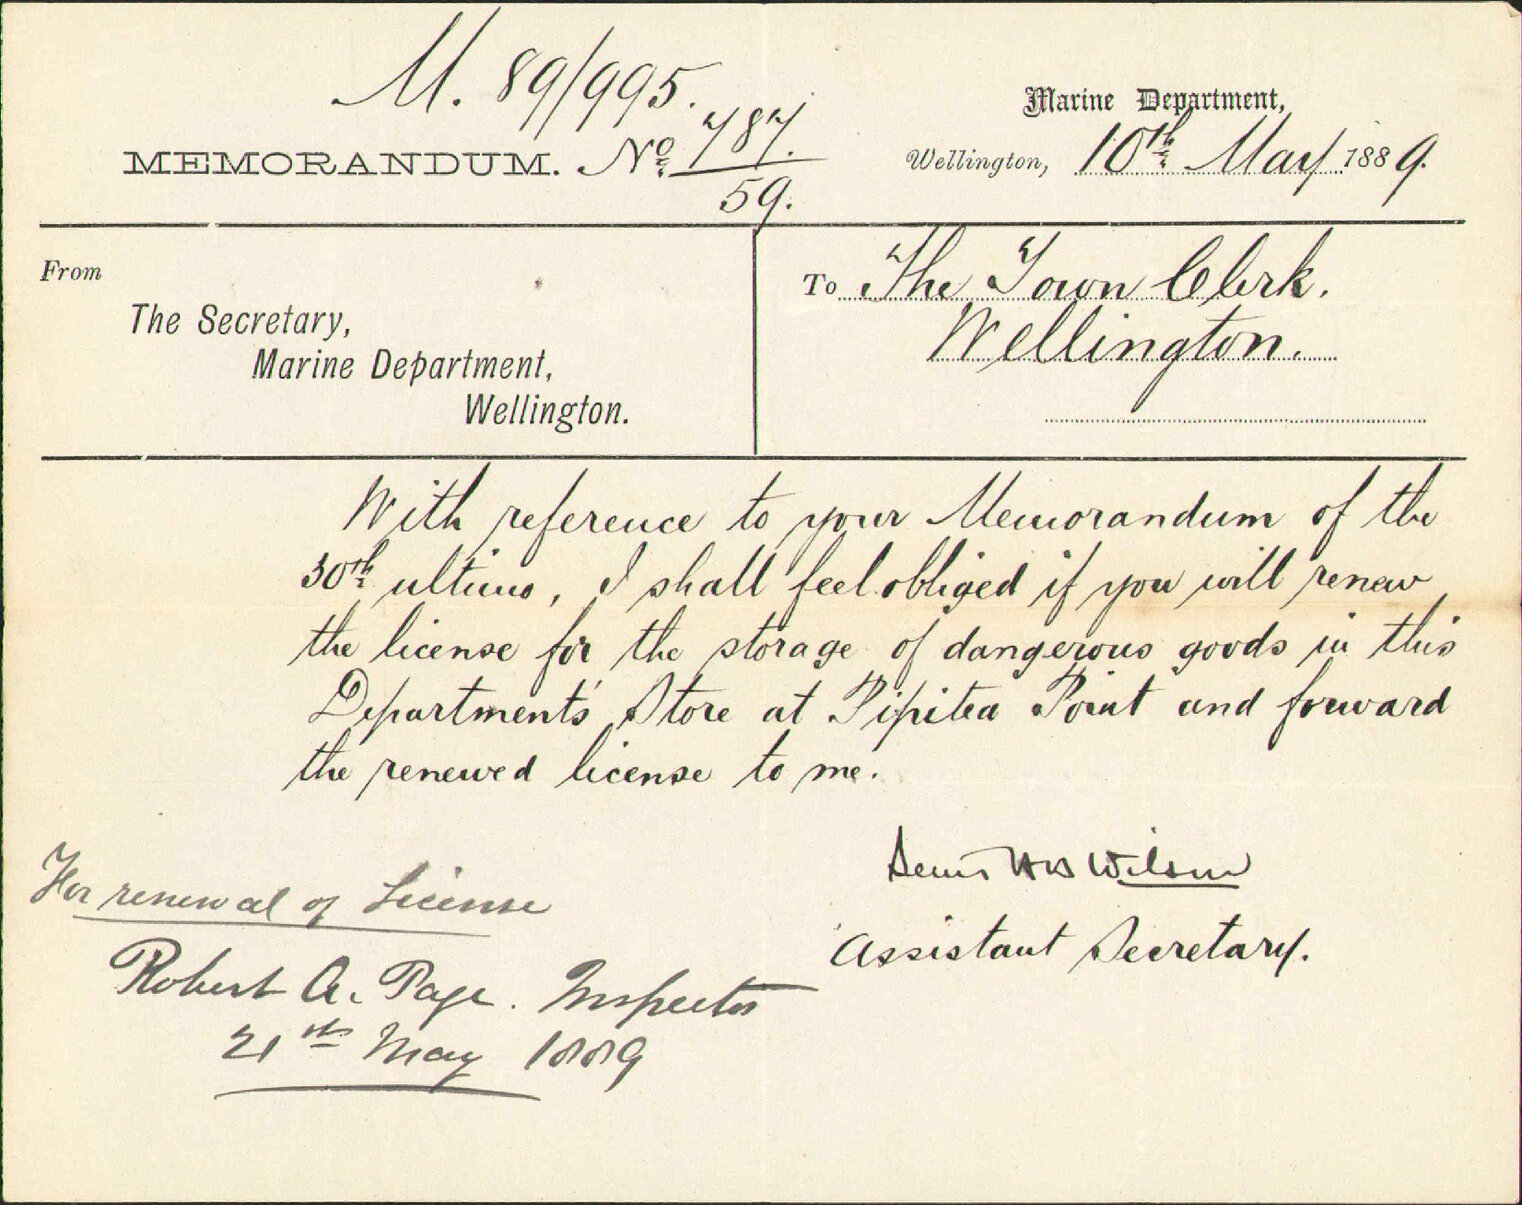 M. 89/995.
MEMORANDUM. No. 787.
59.
Marine Department,
Wellington, 10th May 1889.
From
The Secretary,
Marine Department,
Wellington.
To The Town Clerk.
Wellington.
With reference to your Memorandum of the
30th ultimo, I shall feel obliged if you will renew
the license for the storage of dangerous goods in this
Department's Store at Pipitea Point and forward
the renewed license to me.
Wilson
Assistant Secretary.
For renewal of License
Robert A. Page. Inspector
21st May 1889